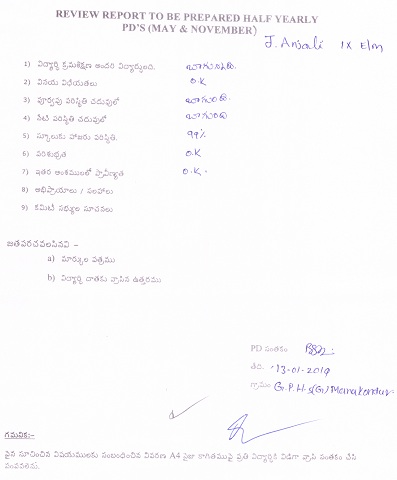 REVIEW REPORT TO BE PREPARED HALF YEARLY
PD'S (MAY & NOVEMBER)
J. Anjali IX E/m
1) విద్యార్థి క్రమశిక్షణ అందరి విద్యార్థులది. బాగున్నది.
2) వినయ విధేయతలు O.K
3) పూర్వపు పరిస్థితి చదువులో బాగుంది.
4) నేటి పరిస్థితి చదువులో బాగుంది
5) స్కూలుకు హాజరు పరిస్థితి. 99%
6) పరిశుభ్రత O.K
7) ఇతర అంశములలో ప్రావీణ్యత O.K.
8) అభిప్రాయాలు / సలహాలు
9) కమిటీ సభ్యుల సూచనలు
జతపరచవలసినవి –
a) మార్కుల పత్రము
b) విద్యార్థి దాతకు వ్రాసిన ఉత్తరము
PD సంతకం
తేది. 13-01-2019
గ్రామం G.P.H.S(G) Manakondur.
గమనిక:–
పైన సూచించిన విషయములకు సంబంధించిన వివరణ A4 సైజు కాగితముపై ప్రతి విద్యార్థికి విడిగా వ్రాసి సంతకం చేసి
పంపవలెను.